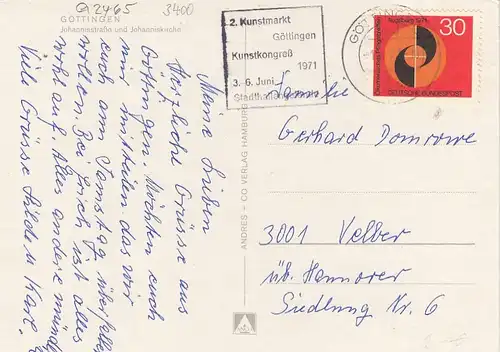 G2465
3400
GÖTTINGEN
Johannisstraße und Johanniskirche
Meine Lieben
Herzliche Grüsse aus
Göttingen. Möchten euch
nur mitteilen das wir
euch am Samstag überfallen
wollen. Bei euch ist alles
wohl auf. Alles andere mündl.
Viele Grüsse Hilde u Karl.
ANDRES + CO VERLAG HAMBURG
2. Kunstmarkt
Göttingen
Kunstkongreß
1971
3.-6. Juni
Stadthalle
GÖTTINGEN
Augsburg 1971
30
DEUTSCHE BUNDESPOST
Familie
Gerhard Domrowe
3001 Velber
üb. Hannover
Siedlung Nr. 6